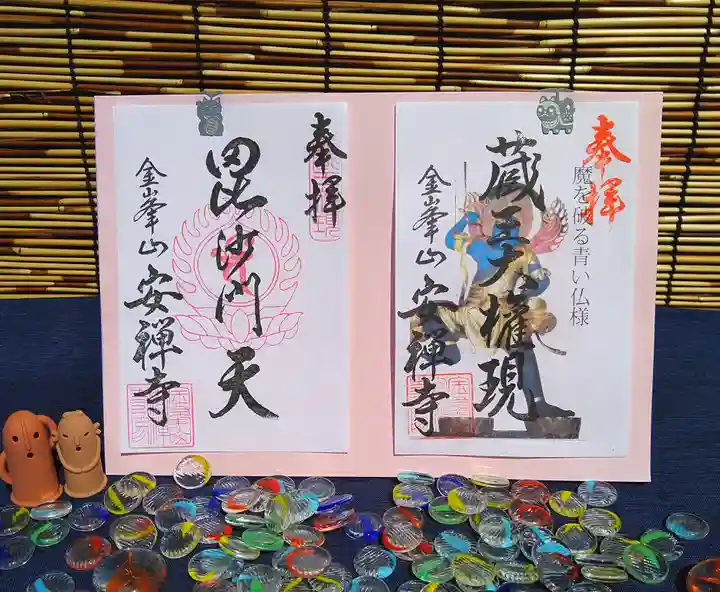 奉拝
毘沙門天
金峯山
安禅寺
奉拝
魔を破る青い仏様
蔵王大権現
金峯山
安禅寺